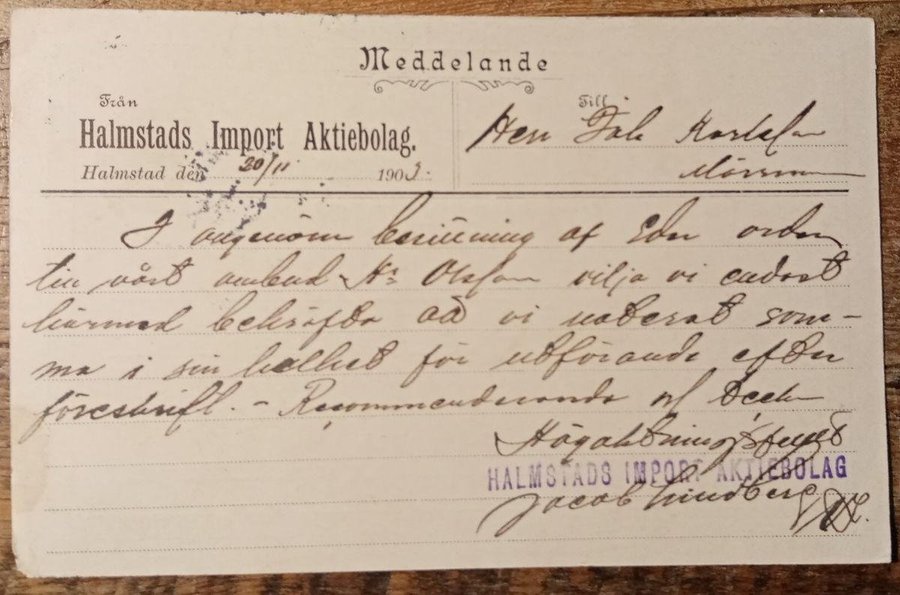 Meddelande
Från
Halmstads Import Aktiebolag.
Halmstad den 20/11 1903.
Till
Herr Joh Karlsson
I angenäm besittning af Eder order
till vårt ombud Hr Olofson vilja vi endast
härmed bekräfta att vi noterat sam-
ma i sin helhet för utförande efter
föreskrift. – Recommenderande
Högaktningsfullt
HALMSTADS IMPORT AKTIEBOLAG
Jacob Lindberg